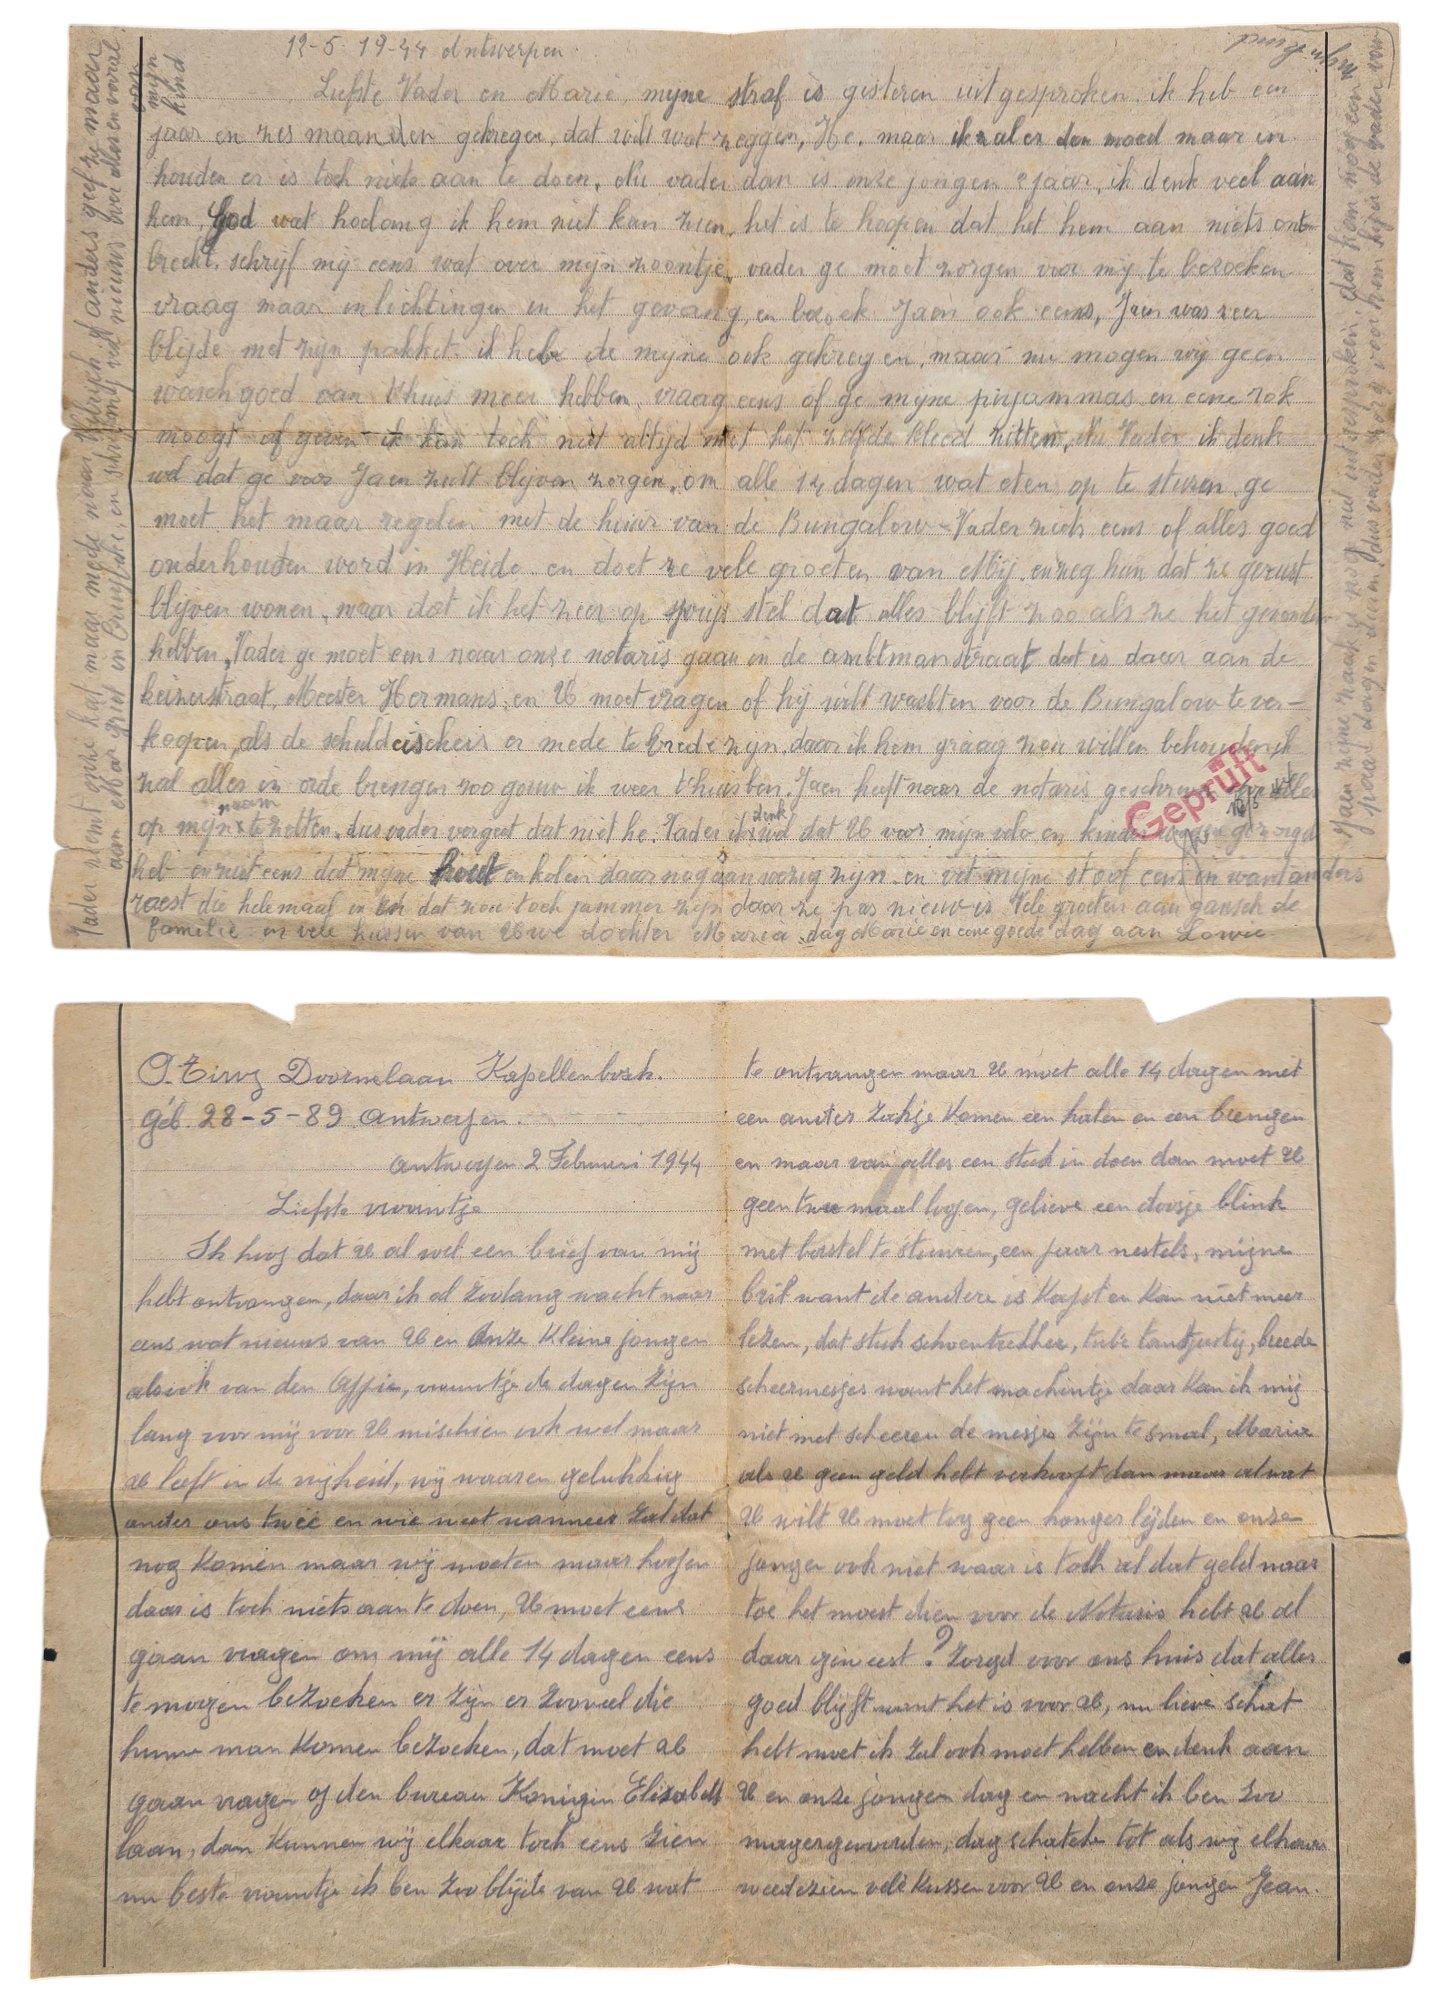 12-5 19-44 Antwerpen
Liefste Vader en Marie, mijne straf is gisteren uitgesproken. ik heb een
jaar en zes maanden gekregen, dat wilt wat zeggen, He. maar ik zal er den moed maar in
houden er is toch niets aan te doen. Nu vader dan is onze jongen jaar, ik denk veel aan
hem, God wat hoelang ik hem niet kan zien, het is te hoopen dat het hem aan niets ont-
breekt. schrijf mij eens wat over mijn zoontje, vader ge moet zorgen voor mij te bezoeken
vraag maar inlichtingen in het gevang, en bezoek Jaen ook eens, Jaen was zeer
blijde met zijn pakket. ik heb de mijne ook gekregen, maar nu mogen wij geen
waschgoed van thuis meer hebben, vraag eens of ge mijne pinjammas en eene rok
moogt afgeven ik kan toch niet altijd met het zelfde kleed zitten, Nu Vader ik denk
wel dat ge voor Jaen zult blijven zorgen, om alle 14 dagen wat eten op te sturen ge
moet het maar regelen met de huur van de Bungalow - Vader ziets eens of alles goed
onderhouden word in Heide. en doet ze vele groeten van Mij. en zeg hun dat ze gerust
blijven wonen, maar dat ik het zeer op prijs stel dat alles blijft zoo als ze het gevonden
hebben, Vader ge moet eens naar onze notaris gaan in de ambtmanstraat dat is daar aan de
keizerstraat, Meester Hermans, en U moet vragen of hij wilt wachten voor de Bungalow te ver-
koopen, als de schuldeischers er mede te vrede zijn, daar ik hem graag zou willen behouden ik
zal alles in orde brengen zoo gouw ik weer thuis ben. Jaen heeft naar de notaris alles
Geprüft
naam
op mijn te zetten, dus vader vergeet dat niet he. Vader ik denk wel dat U voor mijn velo en gezorgd
heb en ziet eens dat mijne hout en kolen daar nog aanwezig zijn. en vet mijne stoof eens in want anders
roest die helemaal in en dat zou toch jammer zijn daar ze pas nieuw is Vele groeten aan gansch de
familie en vele kussen van Uwe dochter Maria dag Marie en eene goede dag aan Lowie
Vader neemt onze kat maar mede naar of anders geef ze maar
aan Mar griet in en schrijf mij veel nieuws over alles en vooral
over
mijn
kind
Jaen zijne zaak is nog niet uitgesproken, dat kan nog een
paar dagen duren, dus vader zorg voor hem hij is de vader van
mijn kind
Doornelaan Kapellenbosh.
Géb. 28-5-89 Antwerpen.
Antwerpen 2 Februari 1944
Liefste vrouwtje
Ik hoop dat U al wel een brief van mij
hebt ontvangen, daar ik al zoolang wacht naar
eens wat nieuws van U en Onze Kleine jongen
alsook van den Appie, vrouwtje de dagen zijn
lang voor mij voor U mischien ook wel maar
U leeft in de vrijheid, wij waaren gelukkig
onder ons twee en wie weet wanneer zal dat
nog komen maar wij moeten maar hoopen
daar is toch niets aan te doen, U moet eens
gaan vragen om mij alle 14 dagen eens
te mogen bezoeken er zijn er zooveel die
hunne man komen bezoeken, dat moet U
gaan vragen op den bureau Konigin Elisabeth
laan, dan kunnen wij elkaar toch eens zien
nu beste vrouwtje ik ben zoo blijde van U wat
te ontvangen maar U moet alle 14 dagen met
een ander zakje komen een halen en een brengen
en maar van alles een stuk in doen dan moet U
geen twee maal loopen, gelieve een doosje blink
met borstel te stuuren, een paar nestels, mijne
bril want de andere is kapot en kan niet meer
lezen, dat stuk schoentrekker, tube tantpastij, breede
scheermesjes want het machientje daar kan ik mij
niet met scheeren de mesjes zijn te smal, Maria
als U geen geld hebt verkoopt dan maar al wat
U wilt U moet tog geen honger lijden en onze
jongen ook niet waar is toch al dat geld naar
toe het moest dien voor de Notaris hebt U al
daar gineest? Zorgd voor ons huis dat alles
goed blijft want het is voor U, nu lieve schat
hebt moet ik zal ook moet hebben en denk aan
U en onze jongen dag en nacht ik ben zoo
mager geworden, dag schatche tot als wij elkaar
weederzien vele kussen voor U en onze jongen Jean.